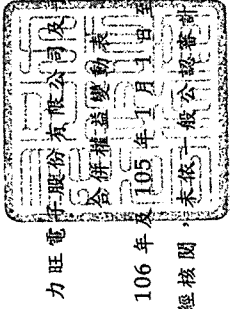 力旺電子股份有限公司及
合併權益變動表
106年及105年1月1日至
經核閱，未依一般公認審計